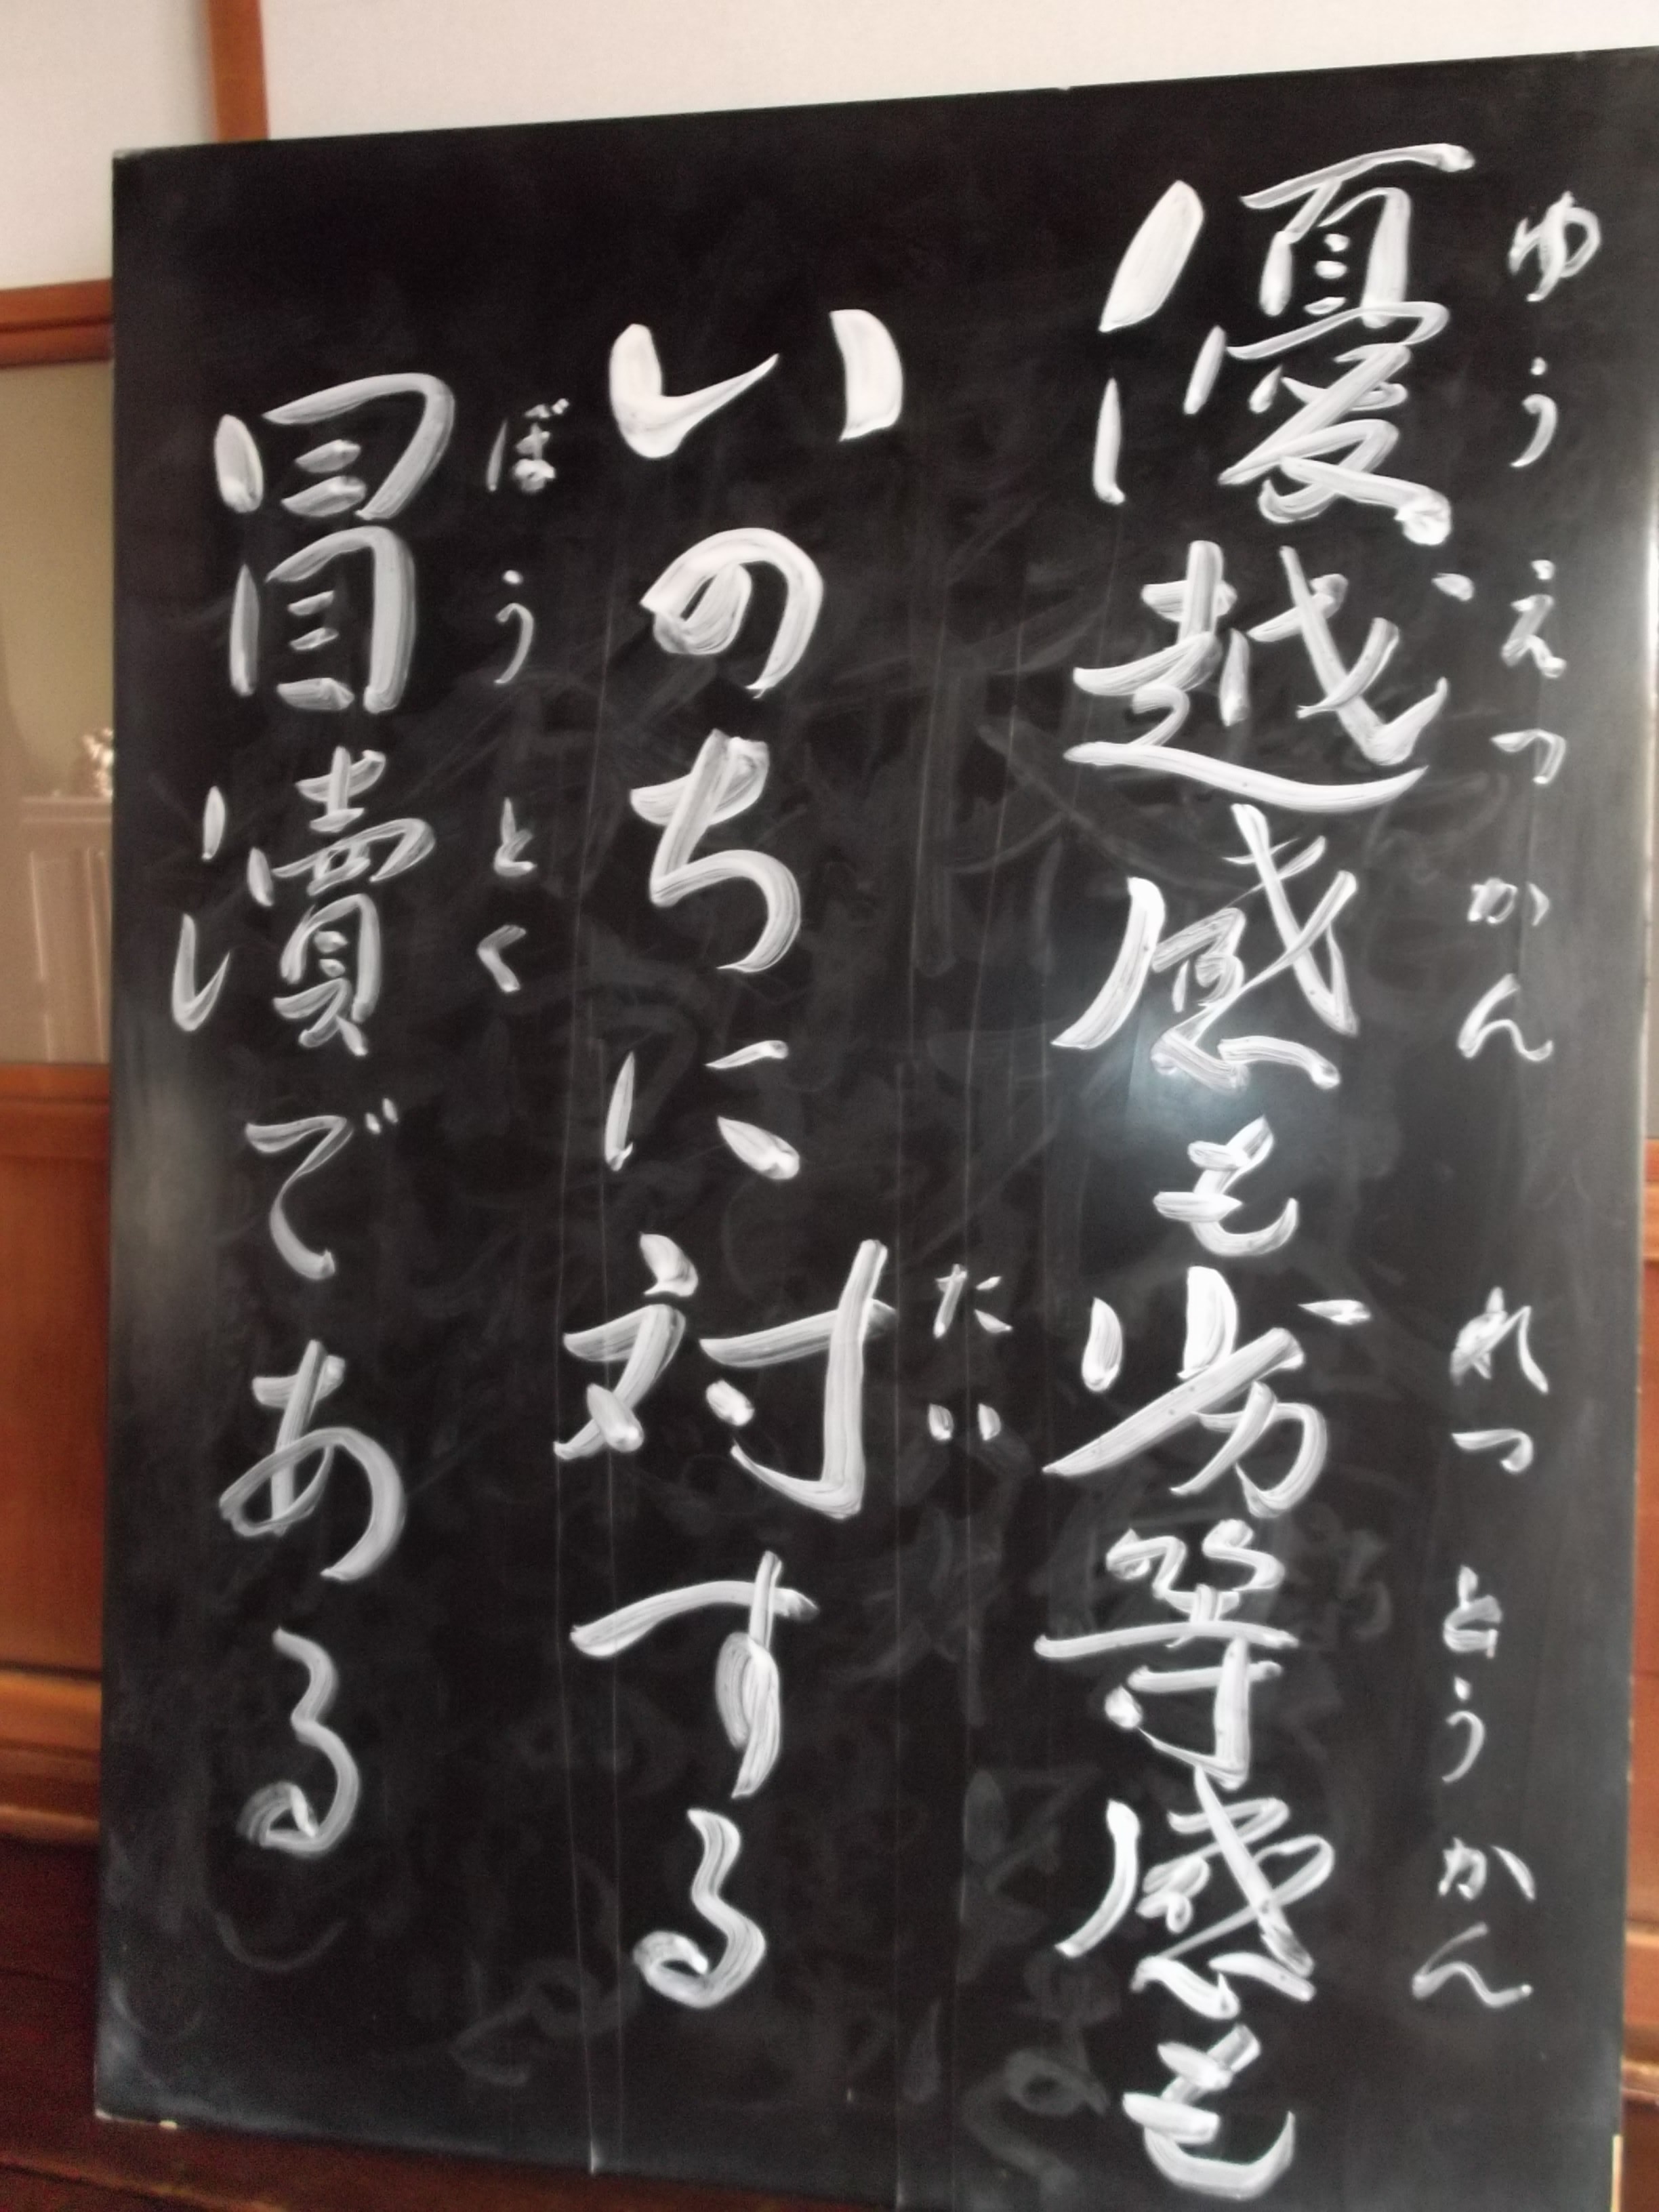 ゆうえつかん れつとうかん
優越感も劣等感も
たい
いのちに対する
ぼうとく
冒瀆である